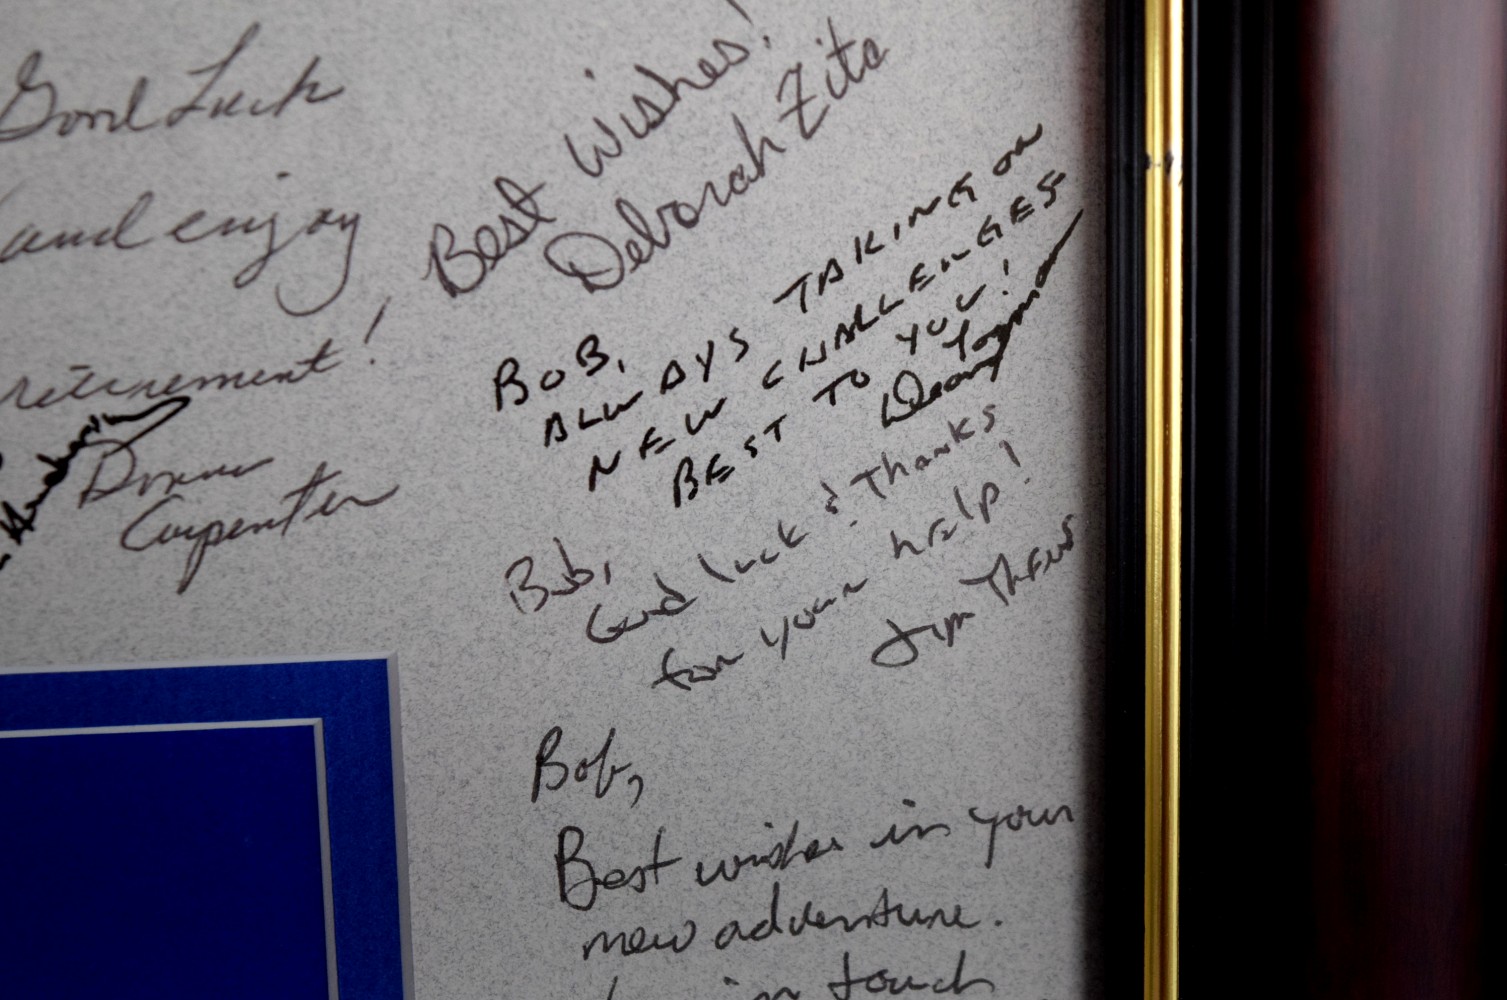 Good Luck
and enjoy
retirement!
Donna
Carpenter
Best Wishes!
Deborah Zito
BOB,
ALWAYS TAKING ON
NEW CHALLENGES
BEST TO YOU!
Bob,
Good luck & Thanks
for your help!
Jim Theus
Bob,
Best wishes in your
new adventure.
in touch